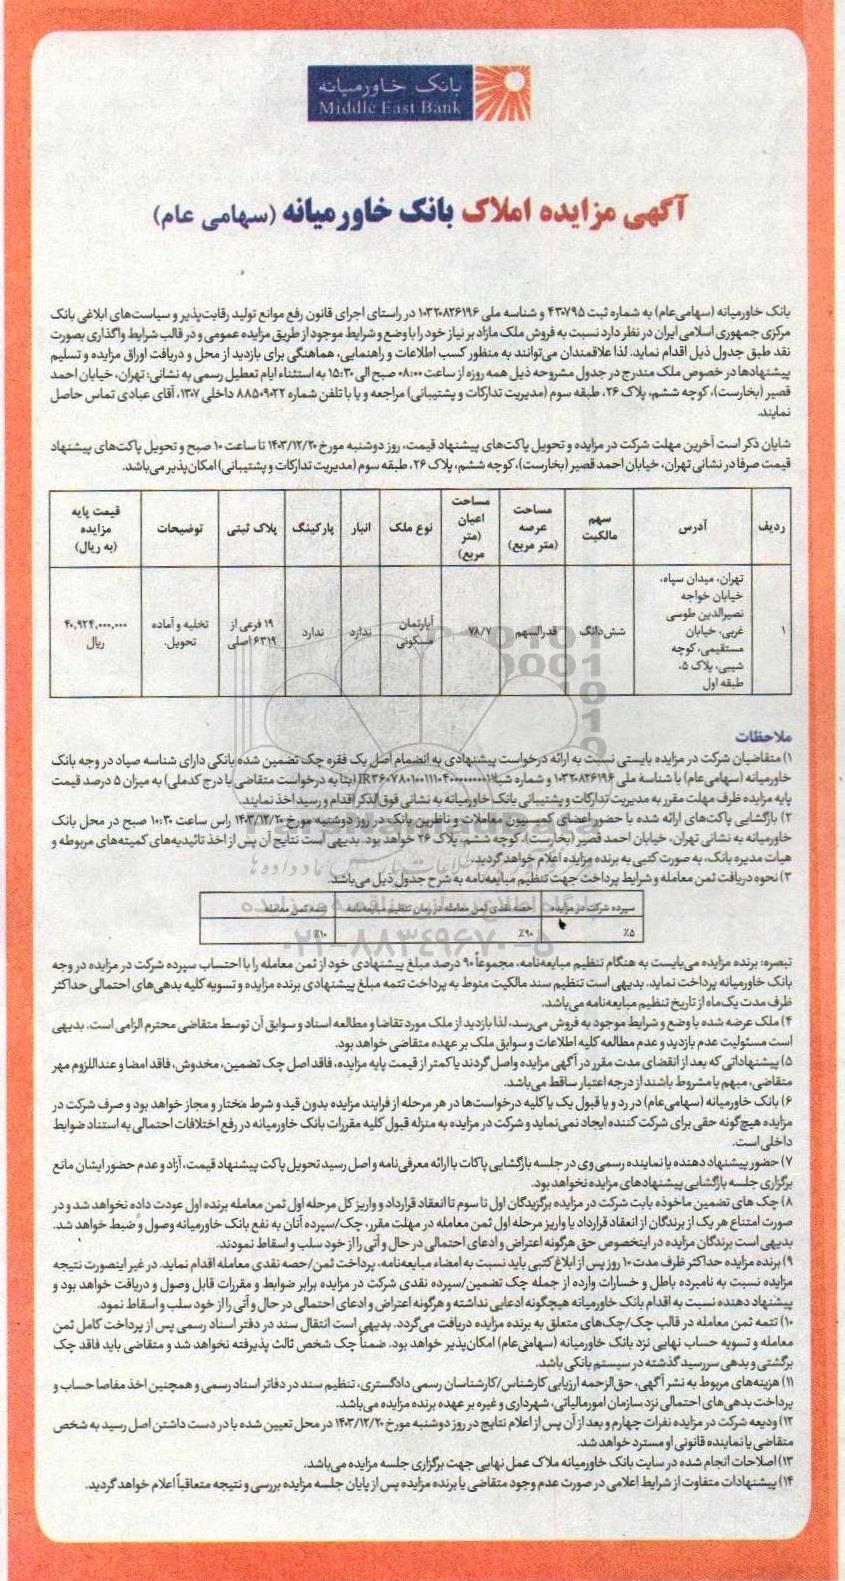 بانک خاورمیانه
Middle East Bank
آگهی مزایده املاک بانک خاورمیانه (سهامی عام)
بانک خاورمیانه (سهامی‌عام) به شماره ثبت ۴۳۰۷۹۵ و شناسه ملی ۱۰۳۲۰۸۲۶۱۹۶ در راستای اجرای قانون رفع موانع تولید رقابت‌پذیر و سیاست‌های ابلاغی بانک
مرکزی جمهوری اسلامی ایران در نظر دارد نسبت به فروش ملک مازاد بر نیاز خود را با وضع و شرایط موجود از طریق مزایده عمومی و در قالب شرایط واگذاری بصورت
نقد طبق جدول ذیل اقدام نماید. لذا علاقمندان می‌توانند به منظور کسب اطلاعات و راهنمایی، هماهنگی برای بازدید از محل و دریافت اوراق مزایده و تسلیم
پیشنهادها در خصوص ملک مندرج در جدول مشروحه ذیل همه روزه از ساعت ۰۸:۰۰ صبح الی ۱۵:۳۰ به استثناء ایام تعطیل رسمی به نشانی: تهران، خیابان احمد
قصیر (بخارست)، کوچه ششم، پلاک ۲۶، طبقه سوم (مدیریت تدارکات و پشتیبانی) مراجعه و یا با تلفن شماره ۸۸۵۰۹۰۲۲ داخلی ۱۳۰۷، آقای عبادی تماس حاصل
نمایند.
شایان ذکر است آخرین مهلت شرکت در مزایده و تحویل پاکت‌های پیشنهاد قیمت، روز دوشنبه مورخ ۱۴۰۳/۱۲/۲۰ تا ساعت ۱۰ صبح و تحویل پاکت‌های پیشنهاد
قیمت صرفا در نشانی تهران، خیابان احمد قصیر (بخارست)، کوچه ششم، پلاک ۲۶، طبقه سوم (مدیریت تدارکات و پشتیبانی) امکان‌پذیر می‌باشد.
ردیف	آدرس	سهم مالکیت	مساحت عرصه (متر مربع)	مساحت اعیان (متر مربع)	نوع ملک	انبار	پارکینگ	پلاک ثبتی	توضیحات	قیمت پایه مزایده (به ریال)
۱	تهران، میدان سپاه، خیابان خواجه نصیرالدین طوسی غربی، خیابان مستقیمی، کوچه شیبی، پلاک ۵، طبقه اول	شش‌دانگ	قدرالسهم	۷۸/۷	آپارتمان مسکونی	ندارد	ندارد	۱۹ فرعی از ۶۳۱۹ اصلی	تخلیه و آماده تحویل.	۴۰,۹۲۴,۰۰۰,۰۰۰ ریال
ملاحظات
۱) متقاضیان شرکت در مزایده بایستی نسبت به ارائه درخواست پیشنهادی به انضمام اصل یک فقره چک تضمین شده بانکی دارای شناسه صیاد در وجه بانک
خاورمیانه (سهامی‌عام) با شناسه ملی ۱۰۳۲۰۸۲۶۱۹۶ و شماره شبا (بنا به درخواست متقاضی با درج کدملی) به میزان ۵ درصد قیمت
پایه مزایده ظرف مهلت مقرر به مدیریت تدارکات و پشتیبانی بانک خاورمیانه به نشانی فوق‌الذکر اقدام و رسید اخذ نمایند.
۲) بازگشایی پاکت‌های ارائه شده با حضور اعضای کمیسیون معاملات و ناظرین بانک در روز دوشنبه مورخ ۱۴۰۳/۱۲/۲۰ راس ساعت ۱۰:۳۰ صبح در محل بانک
خاورمیانه به نشانی تهران، خیابان احمد قصیر (بخارست)، کوچه ششم، پلاک ۲۶ خواهد بود. بدیهی است نتایج آن پس از اخذ تائیدیه‌های کمیته‌های مربوطه و
هیات مدیره بانک، به صورت کتبی به برنده مزایده اعلام خواهد گردید.
۳) نحوه دریافت ثمن معامله و شرایط پرداخت جهت تنظیم مبایعه‌نامه به شرح جدول ذیل می‌باشد.
سپرده شرکت در مزایده	حصه نقدی ثمن معامله در زمان تنظیم مبایعه‌نامه	تتمه ثمن معامله
٪۵	٪۹۰	٪۱۰
۰۲۱-۸۸۳۴۹۶۷۰-۵
تبصره: برنده مزایده می‌بایست به هنگام تنظیم مبایعه‌نامه، مجموعاً ۹۰ درصد مبلغ پیشنهادی خود از ثمن معامله را با احتساب سپرده شرکت در مزایده در وجه
بانک خاورمیانه پرداخت نماید. بدیهی است تنظیم سند مالکیت منوط به پرداخت تتمه مبلغ پیشنهادی برنده مزایده و تسویه کلیه بدهی‌های احتمالی حداکثر
ظرف مدت یک‌ماه از تاریخ تنظیم مبایعه‌نامه می‌باشد.
۴) ملک عرضه شده با وضع و شرایط موجود به فروش می‌رسد، لذا بازدید از ملک مورد تقاضا و مطالعه اسناد و سوابق آن توسط متقاضی محترم الزامی است. بدیهی
است مسئولیت عدم بازدید و عدم مطالعه کلیه اطلاعات و سوابق ملک بر عهده متقاضی خواهد بود.
۵) پیشنهاداتی که بعد از انقضای مدت مقرر در آگهی مزایده واصل گردند یا کمتر از قیمت پایه مزایده، فاقد اصل چک تضمین، مخدوش، فاقد امضا و عنداللزوم مهر
متقاضی، مبهم یا مشروط باشند از درجه اعتبار ساقط می‌باشد.
۶) بانک خاورمیانه (سهامی‌عام) در رد و یا قبول یک یا کلیه درخواست‌ها در هر مرحله از فرایند مزایده بدون قید و شرط مختار و مجاز خواهد بود و صرف شرکت در
مزایده هیچ‌گونه حقی برای شرکت کننده ایجاد نمی‌نماید و شرکت در مزایده به منزله قبول کلیه مقررات بانک خاورمیانه در رفع اختلافات احتمالی به استناد ضوابط
داخلی است.
۷) حضور پیشنهاد دهنده یا نماینده رسمی وی در جلسه بازگشایی پاکات با ارائه معرفی‌نامه و اصل رسید تحویل پاکت پیشنهاد قیمت، آزاد و عدم حضور ایشان مانع
برگزاری جلسه بازگشایی پیشنهادهای مزایده نخواهد بود.
۸) چک های تضمین ماخوذه بابت شرکت در مزایده برگزیدگان اول تا سوم تا انعقاد قرارداد و واریز کل مرحله اول ثمن معامله برنده اول عودت داده نخواهد شد و در
صورت امتناع هر یک از برندگان از انعقاد قرارداد یا واریز مرحله اول ثمن معامله در مهلت مقرر، چک/سپرده آنان به نفع بانک خاورمیانه وصول و ضبط خواهد شد.
بدیهی است برندگان مزایده در اینخصوص حق هرگونه اعتراض و ادعای احتمالی در حال و آتی را از خود سلب و اسقاط نمودند.
۹) برنده مزایده حداکثر ظرف مدت ۱۰ روز پس از ابلاغ کتبی باید نسبت به امضاء مبایعه‌نامه، پرداخت ثمن/حصه نقدی معامله اقدام نماید. در غیر اینصورت نتیجه
مزایده نسبت به نامبرده باطل و خسارات وارده از جمله چک تضمین/سپرده نقدی شرکت در مزایده برابر ضوابط و مقررات قابل وصول و دریافت خواهد بود و
پیشنهاد دهنده نسبت به اقدام بانک خاورمیانه هیچگونه ادعایی نداشته و هرگونه اعتراض و ادعای احتمالی در حال و آتی را از خود سلب و اسقاط نمود.
۱۰) تتمه ثمن معامله در قالب چک/چک‌های متعلق به برنده مزایده دریافت می‌گردد. بدیهی است انتقال سند در دفتر اسناد رسمی پس از پرداخت کامل ثمن
معامله و تسویه حساب نهایی نزد بانک خاورمیانه (سهامی‌عام) امکان‌پذیر خواهد بود. ضمناً چک شخص ثالث پذیرفته نخواهد شد و متقاضی باید فاقد چک
برگشتی و بدهی سررسید گذشته در سیستم بانکی باشد.
۱۱) هزینه‌های مربوط به نشر آگهی، حق‌الزحمه ارزیابی کارشناس/کارشناسان رسمی دادگستری، تنظیم سند در دفاتر اسناد رسمی و همچنین اخذ مفاصا حساب و
پرداخت بدهی‌های احتمالی نزد سازمان امورمالیاتی، شهرداری و غیره بر عهده برنده مزایده می‌باشد.
۱۲) ودیعه شرکت در مزایده نفرات چهارم و بعد از آن پس از اعلام نتایج در روز دوشنبه مورخ ۱۴۰۳/۱۲/۲۰ در محل تعیین شده با در دست داشتن اصل رسید به شخص
متقاضی یا نماینده قانونی او مسترد خواهد شد.
۱۳) اصلاحات انجام شده در سایت بانک خاورمیانه ملاک عمل نهایی جهت برگزاری جلسه مزایده می‌باشد.
۱۴) پیشنهادات متفاوت از شرایط اعلامی در صورت عدم وجود متقاضی یا برنده مزایده پس از پایان جلسه مزایده بررسی و نتیجه متعاقباً اعلام خواهد گردید.